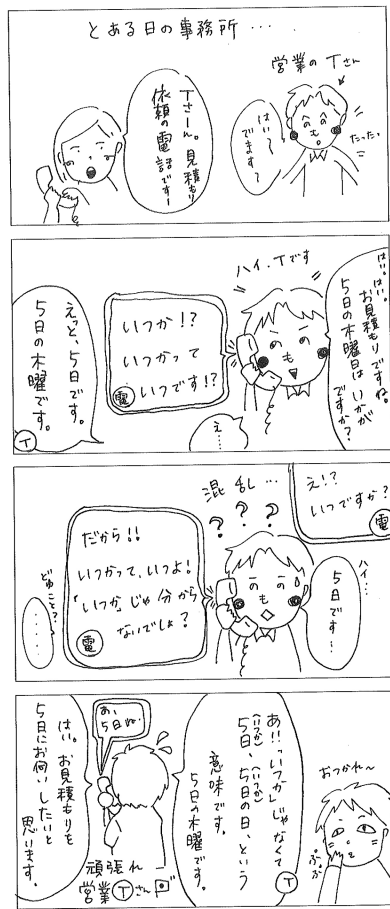 とある日の事務所・・・
営業のTさん
はい〜
でます〜
たったっ
Tさーん。見積もり
依頼の電話です〜
はい。はい。
お見積もりですね。
5日の木曜日は いかが
ですか?
ハイ、Tです
いつか!?
いつかって
いつです!?
電
え…
えっと、5日です。
5日の木曜です。
T
え!?
いつですか?
電
ハイ…
5日です…
混乱…
? ? ?
だから!!
いつかって、いつよ!
「いつか」じゃ分から
ないでしょ?
電
どゆこと?
・・・・・
おつかれ〜
ぷぷぷ
あ!!「いつか」じゃなくて
(いつか) (いつか)
5日、5日の日、という
意味です。
5日の木曜です。
T
あ、
5日ね
頑張れー
営業Tさん
はい。お見積もりを
5日にお伺いしたいと
思います。